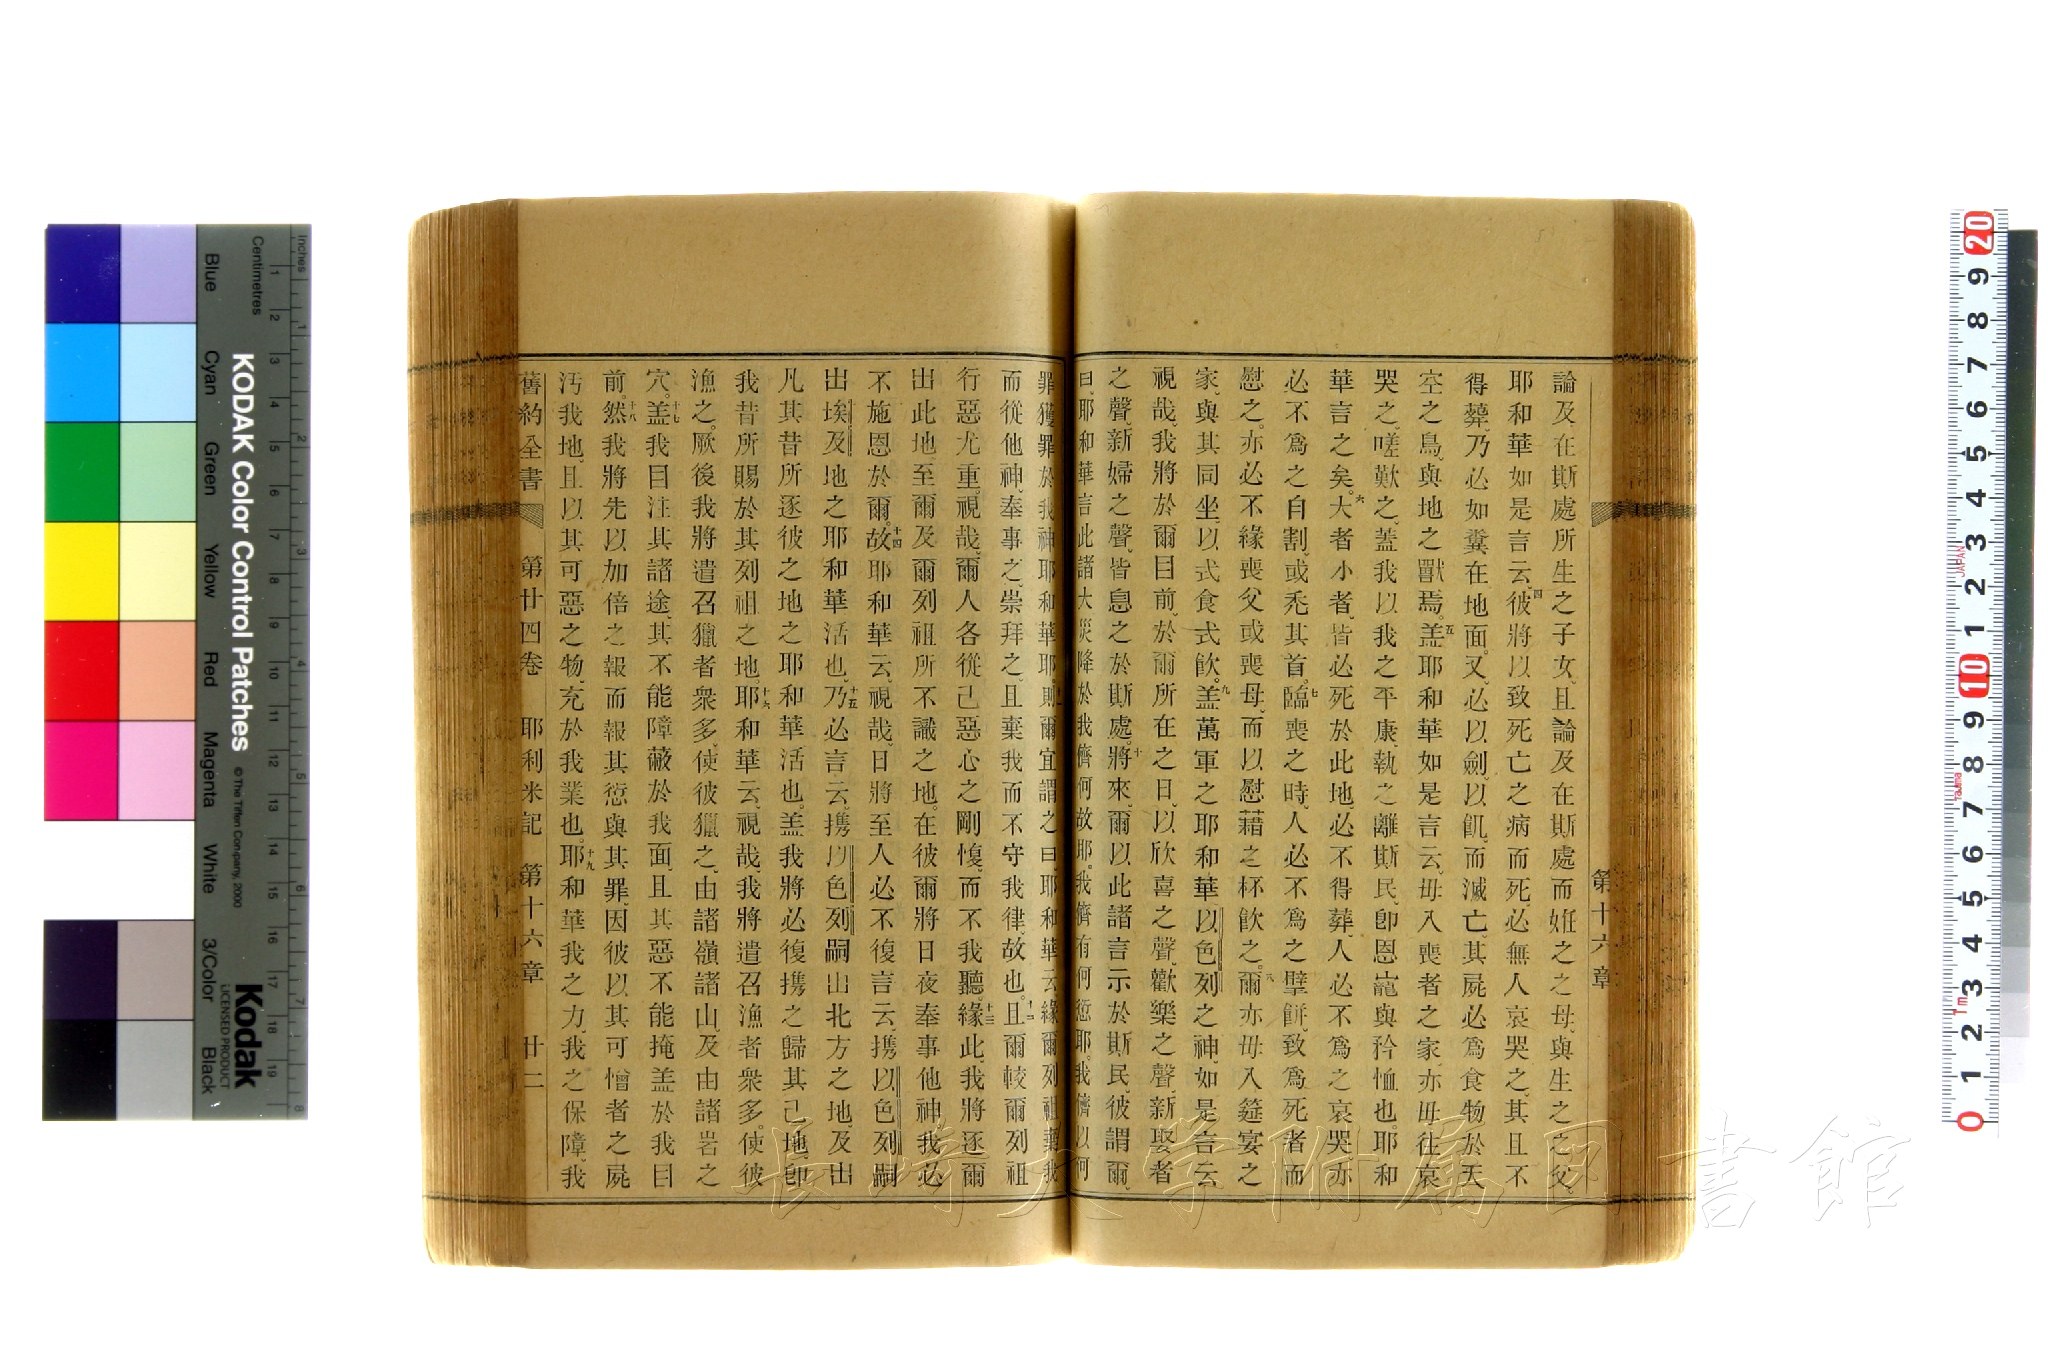 第十六章
論及在斯處所生之子女、且論及在斯處而姙之之母、與生之之父、
耶和華如是言云、四彼將以致死亡之病而死、必無人哀哭之、其且不
得葬、乃必如糞在地面、又必以劍、以飢、而滅亡、其屍必為食物於天
空之鳥、與地之獸焉。五盖耶和華如是言云、毋入喪者之家、亦毋往哀
哭之、嗟歎之、蓋我以我之平康、執之離斯民、卽恩寵與矜恤也。耶和
華言之矣。六大者小者、皆必死於此地、必不得葬、人必不為之哀哭、亦
必不為之自割、或禿其首。七臨喪之時、人必不為之擘餅、致為死者而
慰之。亦必不緣喪父或喪母、而以慰藉之杯飲之。八爾亦毋入筵宴之
家、與其同坐、以式食式飲。九盖萬軍之耶和華以色列之神、如是言云、
視哉、我將於爾目前、於爾所在之日、以欣喜之聲、歡樂之聲、新娶者
之聲、新婦之聲、皆息之於斯處。十將來、爾以此諸言示於斯民、彼謂爾、
曰、耶和華言此諸大災降於我儕何故耶。我儕有何愆耶。我儕以何
罪獲罪於我神耶和華耶。則爾宜謂之曰、耶和華云、緣爾列祖棄我
而從他神、奉事之、崇拜之、且棄我而不守我律、故也。十二且爾較爾列祖
行惡尤重、視哉、爾人各從己惡心之剛愎、而不我聽。十三緣此、我將逐爾
出此地、至爾及爾列祖所不識之地。在彼爾將日夜奉事他神、我必
不施恩於爾。十四故耶和華云、視哉、日將至人必不復言云、携以色列嗣
出埃及地之耶和華活也、十五乃必言云、携以色列嗣出北方之地及出
凡其昔所逐彼之地之耶和華活也。盖我將必復携之歸其己地、卽
我昔所賜於其列祖之地。十六耶和華云、視哉、我將遣召漁者衆多、使彼
漁之。厥後我將遣召獵者衆多、使彼獵之、由諸嶺諸山、及由諸岩之
穴。十七盖我目注其諸途、其不能障蔽於我面、且其惡不能掩盖於我目
前。十八然我將先以加倍之報而報其愆與其罪、因彼以其可憎者之屍
汚我地、且以其可惡之物、充於我業也。十九耶和華我之力、我之保障、我
舊約全書 第廿四卷 耶利米記 第十六章 廿二
長崎大学附属図書館
KODAK Color Control Patches
© The Tiffen Company, 2000
Kodak
LICENSED PRODUCT
Inches
Centimetres
Blue
Cyan
Green
Yellow
Red
Magenta
White
3/Color
Black
JAPAN